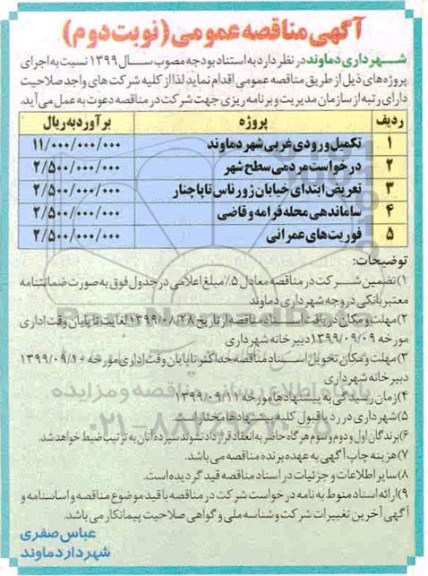 آگهی مناقصه عمومی (نوبت دوم)
شهرداری دماوند در نظر دارد به استناد بودجه مصوب سال ۱۳۹۹ نسبت به اجرای
پروژه های ذیل از طریق مناقصه عمومی اقدام نماید لذا از کلیه شرکت های واجد صلاحیت
دارای رتبه از سازمان مدیریت و برنامه ریزی جهت شرکت در مناقصه دعوت به عمل می آید.
ردیف پروژه برآورد به ریال
۱ تکمیل ورودی غربی شهر دماوند ۱۱/۰۰۰/۰۰۰/۰۰۰
۲ درخواست مردمی سطح شهر ۲/۵۰۰/۰۰۰/۰۰۰
۳ تعریض ابتدای خیابان ژورناس تا پاچنار ۲/۵۰۰/۰۰۰/۰۰۰
۴ ساماندهی محله فرامه و قاضی ۲/۵۰۰/۰۰۰/۰۰۰
۵ فوریت های عمرانی ۲/۵۰۰/۰۰۰/۰۰۰
توضیحات:
۱) تضمین شرکت در مناقصه معادل ۵٪ مبلغ اعلامی در جدول فوق به صورت ضمانتنامه
معتبر بانکی در وجه شهرداری دماوند
۲) مهلت و مکان دریافت اسناد مناقصه از تاریخ ۱۳۹۹/۰۸/۲۸ لغایت تا پایان وقت اداری
مورخه ۱۳۹۹/۰۹/۰۹ دبیرخانه شهرداری
۳) مهلت و مکان تحویل اسناد مناقصه حداکثر تا پایان وقت اداری مورخه ۱۳۹۹/۰۹/۱۰
دبیرخانه شهرداری
۴) زمان رسیدگی به پیشنهادها مورخه ۱۳۹۹/۰۹/۱۱
۵) شهرداری در رد یا قبول کلیه پیشنهادها مختار است
۶) برندگان اول و دوم و سوم هرگاه حاضر به انعقاد قرارداد نشوند سپرده آنان به ترتیب ضبط خواهد شد.
۷) هزینه چاپ آگهی به عهده برنده مناقصه می باشد.
۸) سایر اطلاعات و جزئیات در اسناد مناقصه قید گردیده است.
۹) ارائه اسناد منوط به نامه درخواست شرکت در مناقصه با قید موضوع مناقصه و اساسنامه و
آگهی آخرین تغییرات شرکت و شناسه ملی و گواهی صلاحیت پیمانکار می باشد.
عباس صفری
شهردار دماوند
پایگاه اطلاع رسانی مناقصه و مزایده
۰۲۱-۸۸۳۴۹۶۷۰-۵